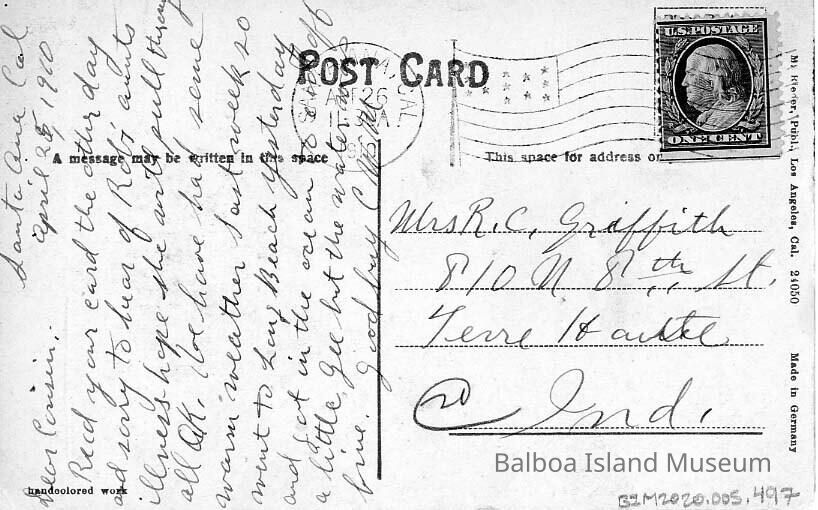 Santa Ana Cal
April 25, 1910
Dear Cousin.
Recd your card the other day
and sorry to hear of Robs aunts
illness hope she will pull through
all OK. We have had some
warm weather last week so
went to Long Beach yesterday
and got in the ocean & cool off
a little, gee but the water was
fine. Good bye
POST CARD
A message may be written in this space
This space for address on
U.S. POSTAGE
ONE CENT
SANTA ANA, CAL
26
Mrs R. C. Griffith
810 N 8th St.
Terre Haute
Ind.
M. Rieder, Publ., Los Angeles, Cal. 24050 Made in Germany
handcolored work
Balboa Island Museum
BIM2020.005.497